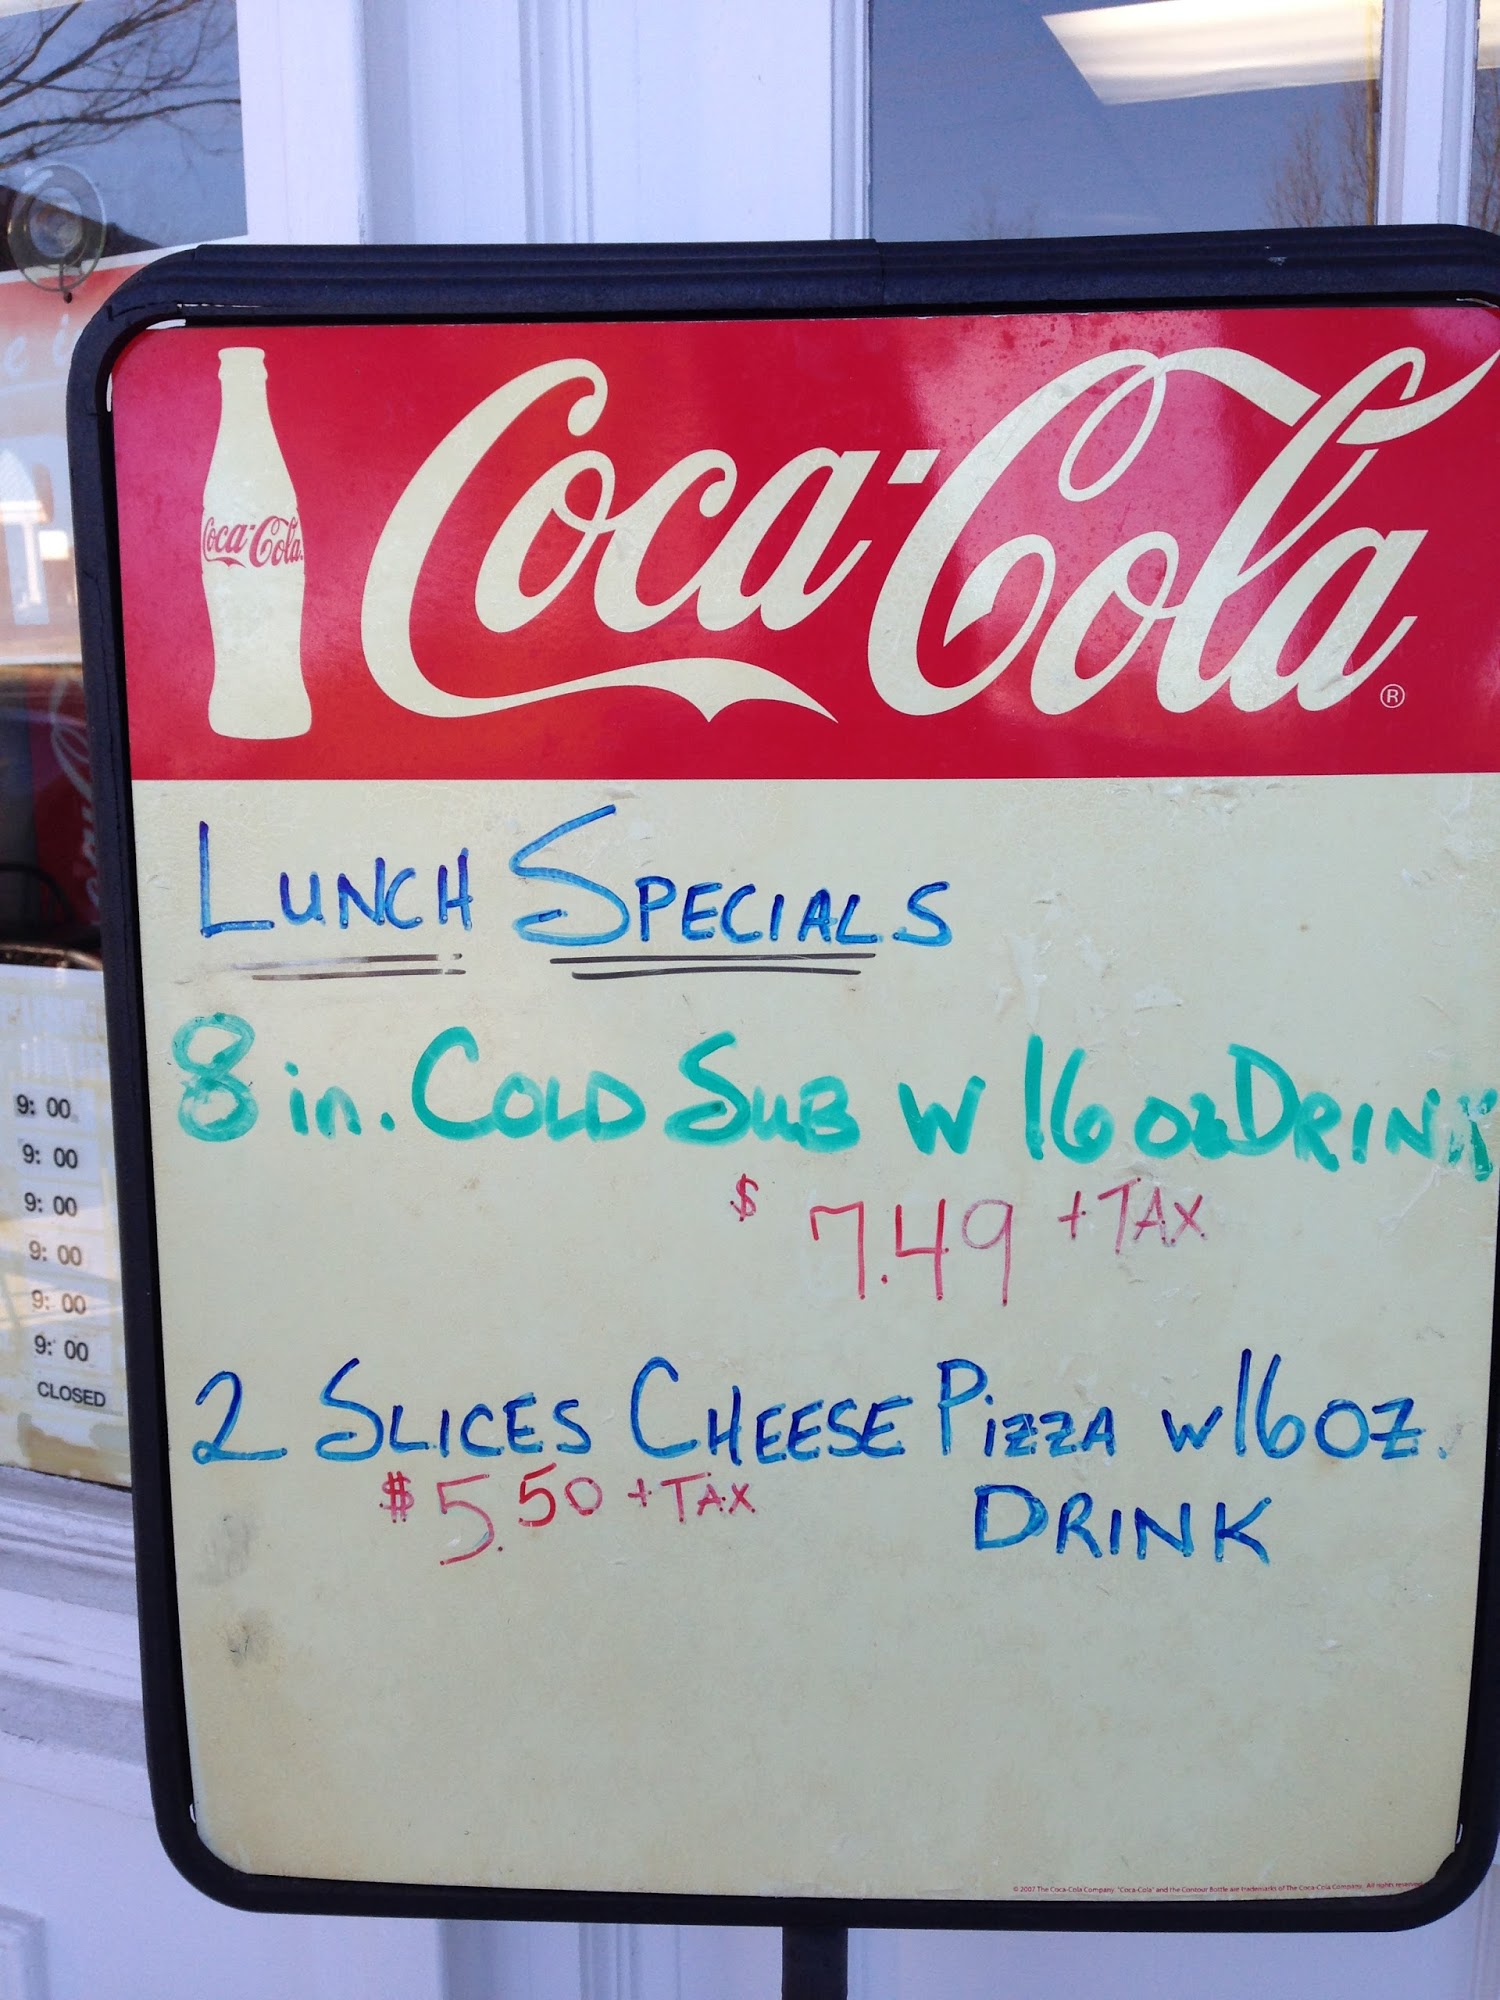 Coca-Cola
Coca-Cola®
LUNCH SPECIALS
8 in. COLD SUB W 16 oz DRINK
$ 7.49 + TAX
2 SLICES CHEESE PIZZA w/16 OZ.
$5.50 + TAX
DRINK
9: 00
9: 00
9: 00
9: 00
9: 00
9: 00
CLOSED
© 2007 The Coca-Cola Company. "Coca-Cola" and the Contour Bottle are trademarks of The Coca-Cola Company. All rights reserved.